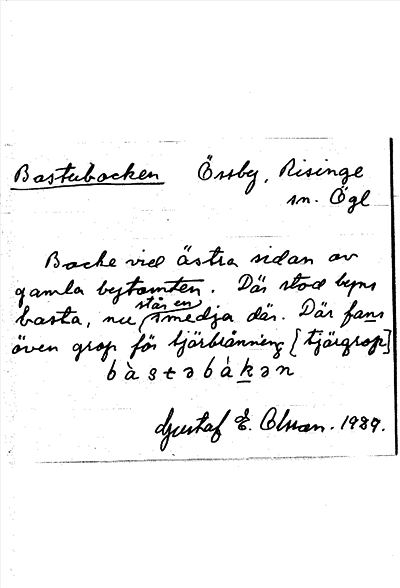 Bastubacken Össby, Risinge
sn. Ögl
Backe vid östra sidan av
gamla bytomten. Där stod byns
bastu, nu står en smedja där. Där fans
även grop för tjärbränning [tjärgrop]
bàstəbàkən
Gustaf E. Olsson. 1929.